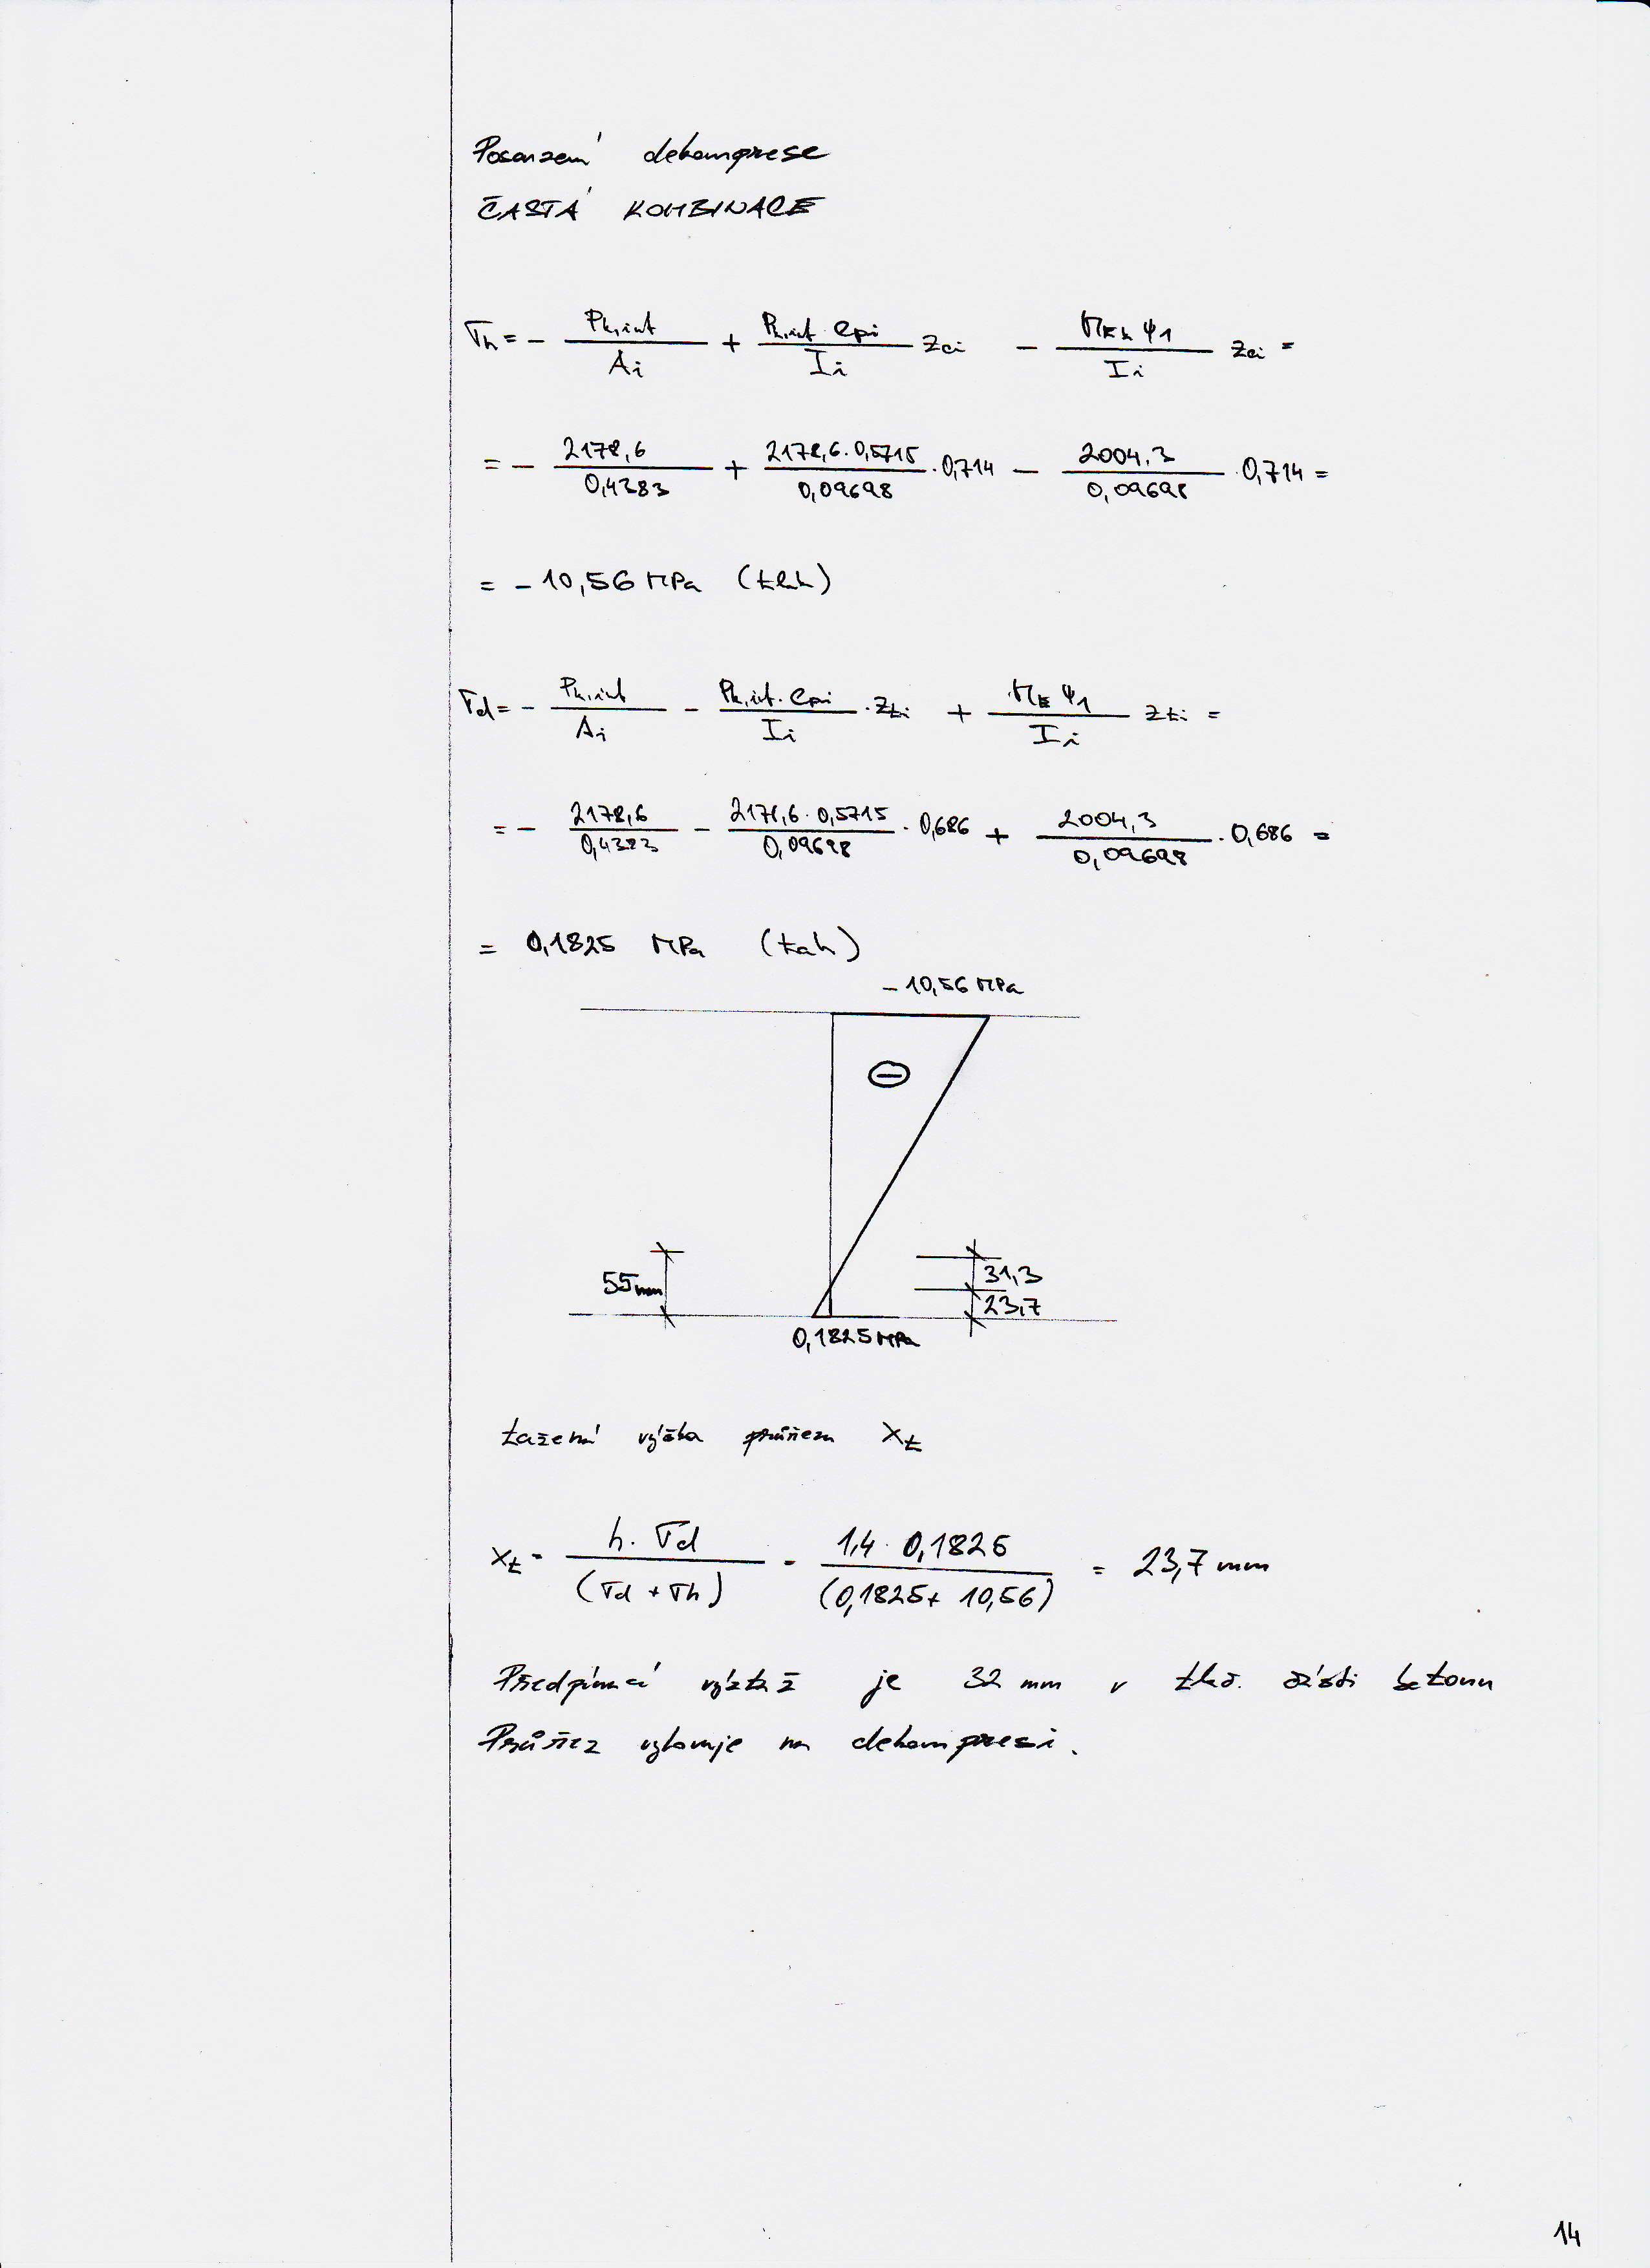 Posouzení dekomprese
ČASTÁ KOMBINACE
σh = - Pk,inf / Ai + Pk,inf · epi / Ii zci - MEk ψ1 / Ii zci =
= - 2178,6 / 0,4383 + 2178,6 · 0,5715 / 0,09698 · 0,714 - 2004,3 / 0,09698 · 0,714 =
= - 10,56 MPa (tlak)
σd = - Pk,inf / Ai - Pk,inf · epi / Ii · zti + ME ψ1 / Ii zti =
= - 2178,6 / 0,4383 - 2178,6 · 0,5715 / 0,09698 · 0,686 + 2004,3 / 0,09698 · 0,686 =
= 0,1825 MPa (tah)
- 10,56 MPa
⊖
55mm
31,3
23,7
0,1825 MPa
tažená výška průřezu xt
xt = h · σd / (σd + σh) = 1,4 · 0,1825 / (0,1825 + 10,56) = 23,7 mm
Předpínací výztuž je 32 mm v tlač. části betonu
Průřez vyhovuje na dekompresi.
14